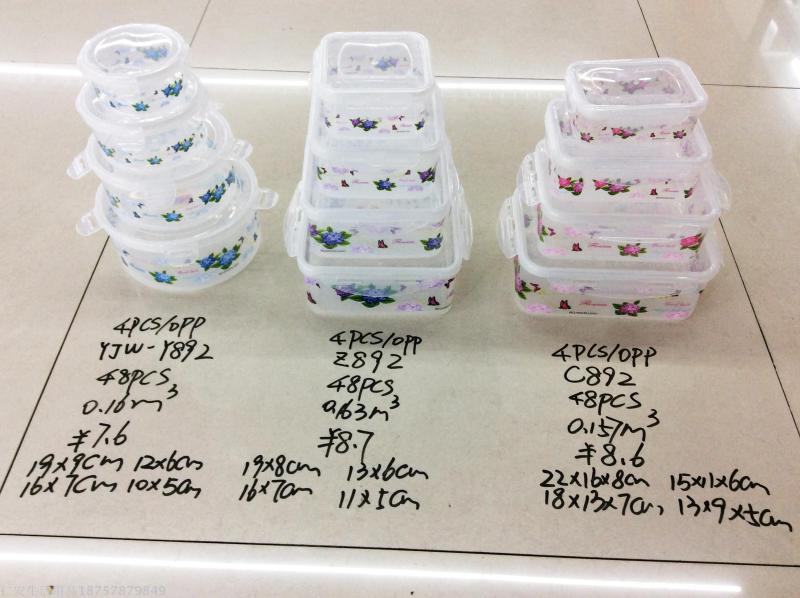 4PCS/OPP
YJW-Y892
48PCS
0.16m³
¥7.6
19×9cm 12×6cm
16×7cm 10×5cm
4PCS/OPP
Z892
48PCS
0.163m³
¥8.7
19×8cm 13×6cm
16×7cm 11×5cm
4PCS/OPP
C892
48PCS
0.157m³
¥8.6
22×16×8cm 15×11×6cm
18×13×7cm, 13×9×5cm
18757879849